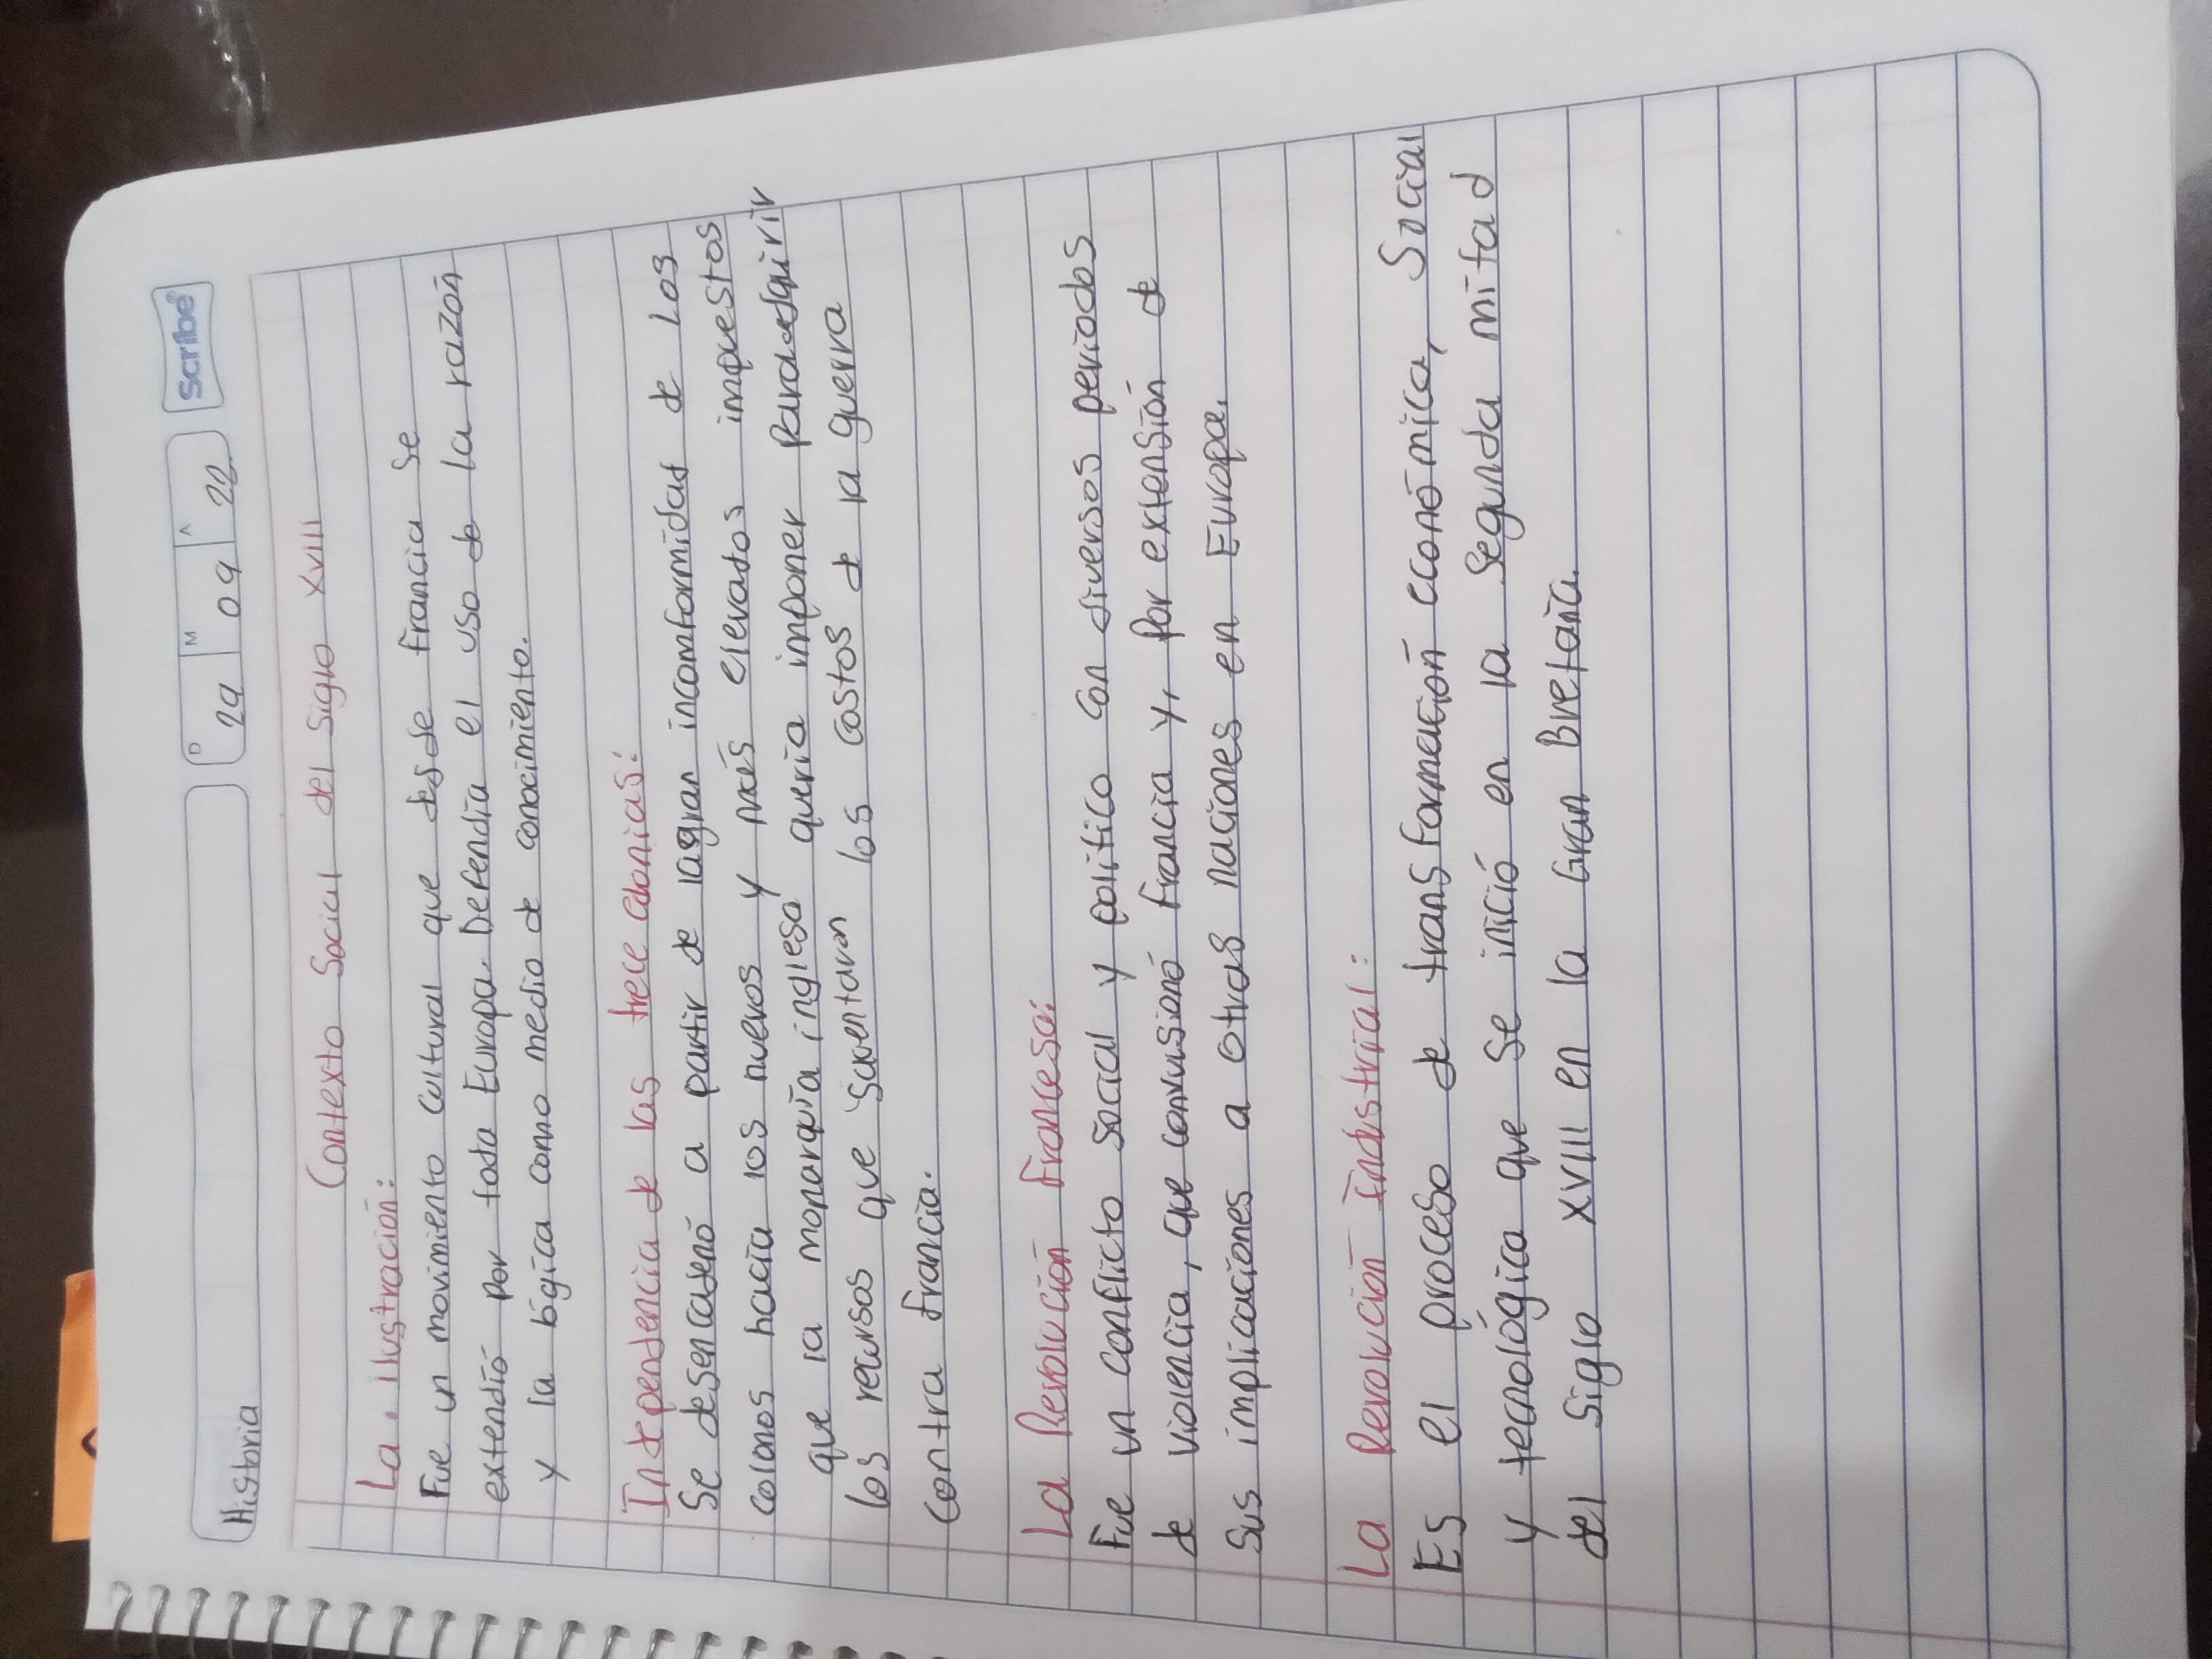 Historia
D M A
29 09 22
scribe
Contexto Social del Siglo XVIII
La ilustración:
Fue un movimiento cultural que desde Francia se
extendió por toda Europa. Defendía el uso de la razón
y la lógica como medio de conocimiento.
Independencia de las trece colonias:
Se desencadenó a partir de lagran incomformidad de los
colonos hacia los nuevos y más elevados impuestos
que la monarquía inglesa quería imponer para adquirir
los recursos que solventaran los costos de la guerra
contra Francia.
La Revolución Francesa:
Fue un conflicto social y político con diversos periodos
de violencia, que convulsionó Francia y, por extensión de
sus implicaciones a otras naciones en Europa.
La Revolución Industrial:
Es el proceso de transformación económica, Social
y tecnológica que se inició en la segunda mitad
del siglo XVIII en la Gran Bretaña.